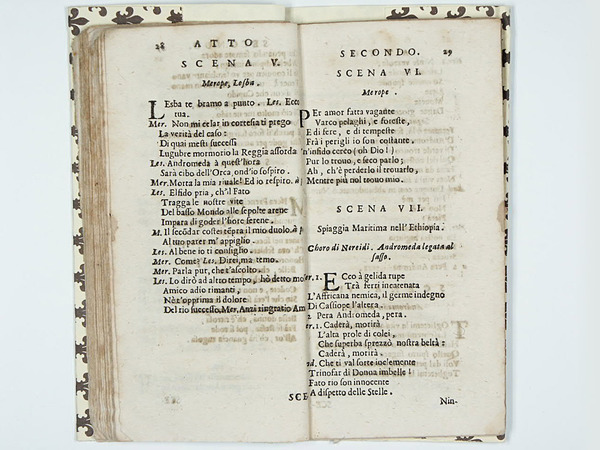 28 ATTO
SCENA V.
Merope, Lesba.
LEsba te, bramo a punto. Les. Ecc
tua.
Mer. Non mi celar in cortesia ti prego
La verità del caso:
Di quai mesti successi
Lugubre mormorio la Reggia assorda
Les. Andromeda à quest'hora
Sarà cibo dell'Orca, ond'io sospiro.
Mer. Morta la mia riuale! Ed io respiro.
Les. Elfido pria, ch'il Fato
Tragga le nostre vite
Del basso Mondo alle sepolte arene
Impara di goder l'hore serene.
M. Il secōdar costei tēpra il mio duolo.
Al tuo parer m'appiglio.
Les. Al bene io ti consiglio.
Mer. Come? Les. Direi, ma temo.
Mer. Parla pur, che t'ascolto.
Les. Lo dirò ad altro tempo, hò detto mo
Amico adio rimanti,
Nè t'opprima il dolore
Del rio successo. Mer. Anzi ringratio Am
SCE
SECONDO. 29
SCENA VI.
Merope.
PEr amor fatta vagante
Varco pelaghi, e foreste,
E di fere, e di tempeste
Frà i perigli io son costante.
'n'infido cerco (oh Dio!)
Pur lo trouo, e seco parlo;
Ah, ch'è perderlo il trouarlo,
Mentre più nol trouo mio.
SCENA VII.
Spiaggia Maritima nell'Ethiopia.
Choro di Nereidi. Andromeda legata al
sasso.
er. 1. ECco à gelida rupe
Trà ferri incatenata
L'Affricana nemica, il germe indegno
Di Cassiope l'altera.
2 Pera Andromeda, pera.
er. 1. Caderà, morirà
L'alta prole di colei,
Che superba sprezzò nostra beltà:
Caderà, morirà.
nd. Che ti val sorte inclemente
Trionfar di Donna imbelle!
Fato rio son innocente
A dispetto delle Stelle.
Nin-